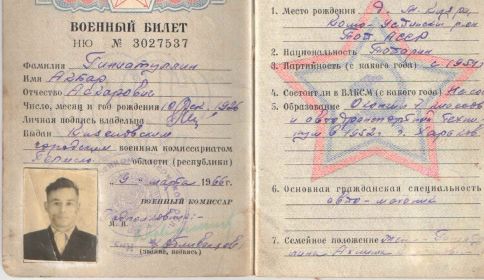 ВОЕННЫЙ БИЛЕТ
НЮ № 3027537
Фамилия Гиниатуллин
Имя Акбар
Отчество
Число, месяц и год рождения 10 дек. 1926
Личная подпись владельца
Выдан Кизеловским
городским военным комиссариатом
области (республики)
9 марта 1966 г.
ВОЕННЫЙ КОМИССАР
М. п.
(звание, подпись)
1. Место рождения
Камско-Устьинский р-он
Тат. АССР
2. Национальность Татарин
3. Партийность (с какого года) с 1954
4. Состоит ли в ВЛКСМ (с какого года) Не сос
5. Образование Окончил 7 классов
и автотранспортный техни
кум в 1952 г. Харьков
6. Основная гражданская специальность
авто-механик
7. Семейное положение